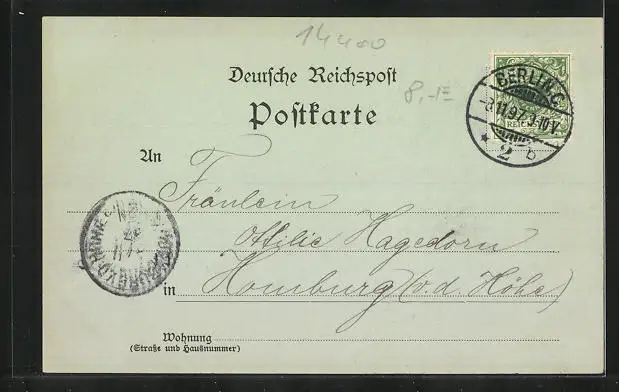 14400
Deutsche Reichspost
8,-
BERLIN.C.
Postkarte
REICHSPOST
11.97. 9-10V.
* 2 b
An
Fräulein
Ottilie Hagedorn
in Homburg (v. d. Höhe)
HOMBURG V.D. HÖHE
Wohnung
(Straße und Hausnummer)